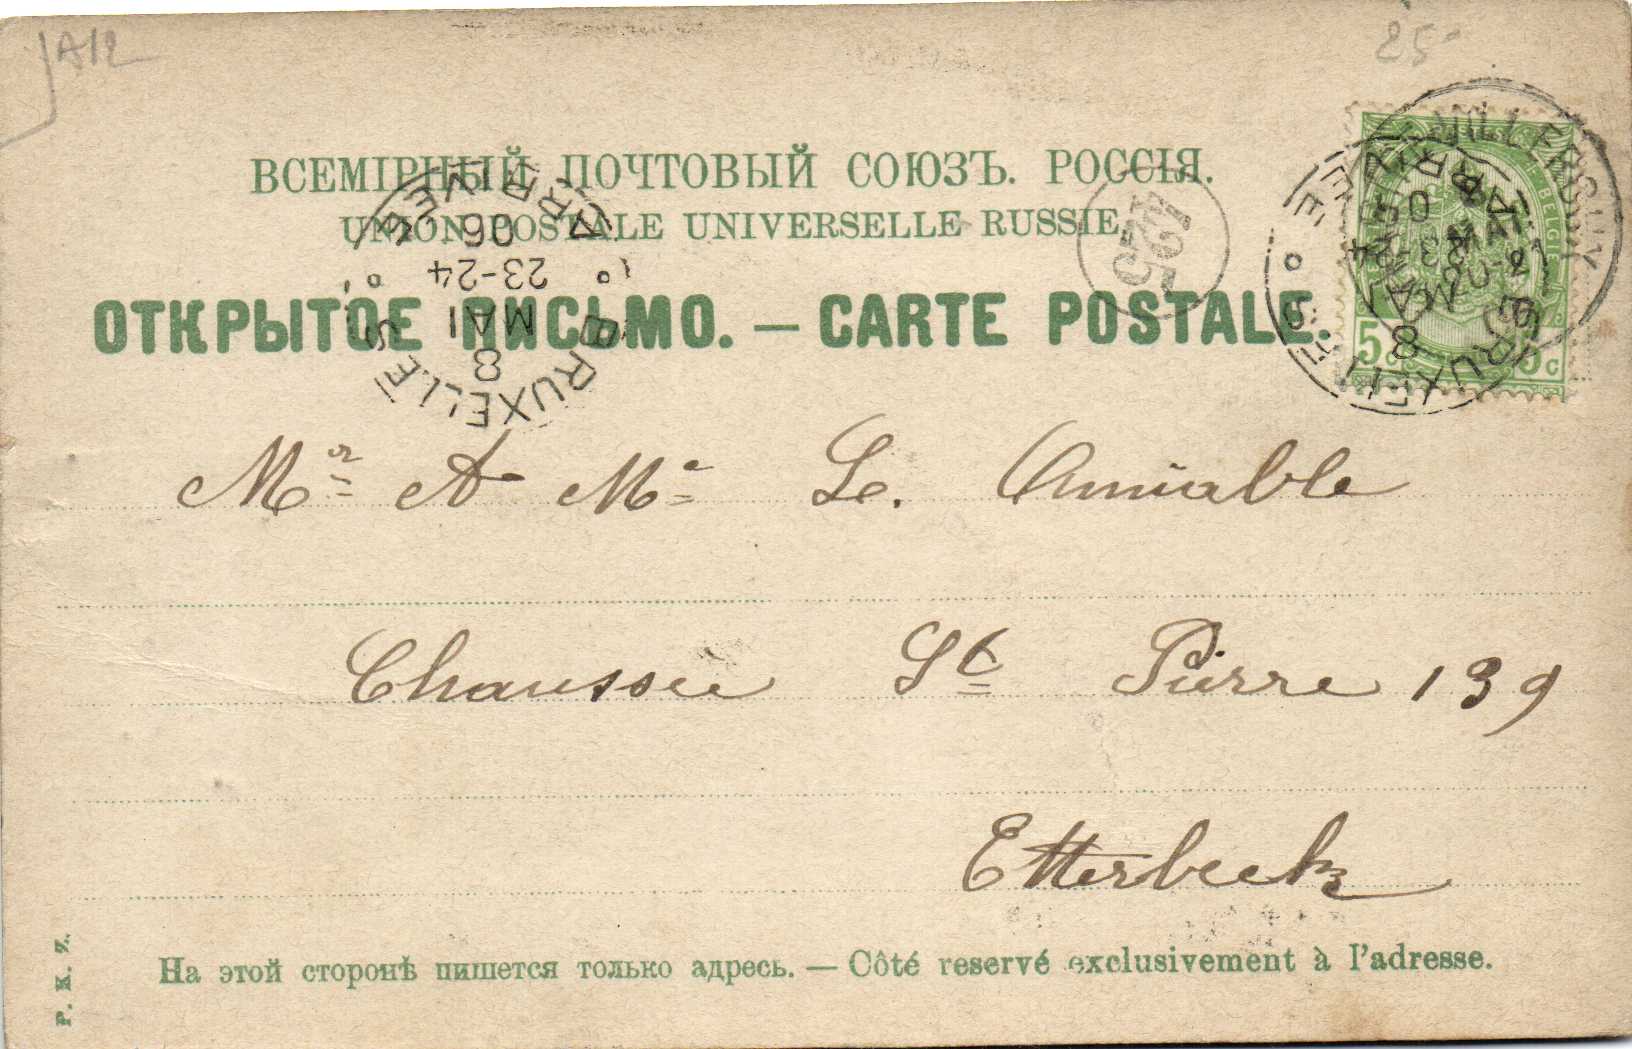 A12
25-
ВСЕМІРНЫЙ ПОЧТОВЫЙ СОЮЗЪ. РОССІЯ.
UNION POSTALE UNIVERSELLE RUSSIE.
ОТКРЫТОЕ ПИСЬМО. — CARTE POSTALE.
5c 5c
BRUXELLES
8
MAI
23-24
06
ARRIVÉE
BRUXELLES
8
MAI
ARRIVÉE
Mr A Me Le. Amiable
Chaussee St Pierre 139
Etterbeek
На этой сторонѣ пишется только адресь. — Côté reservé exclusivement à l'adresse.
P. K. Z.